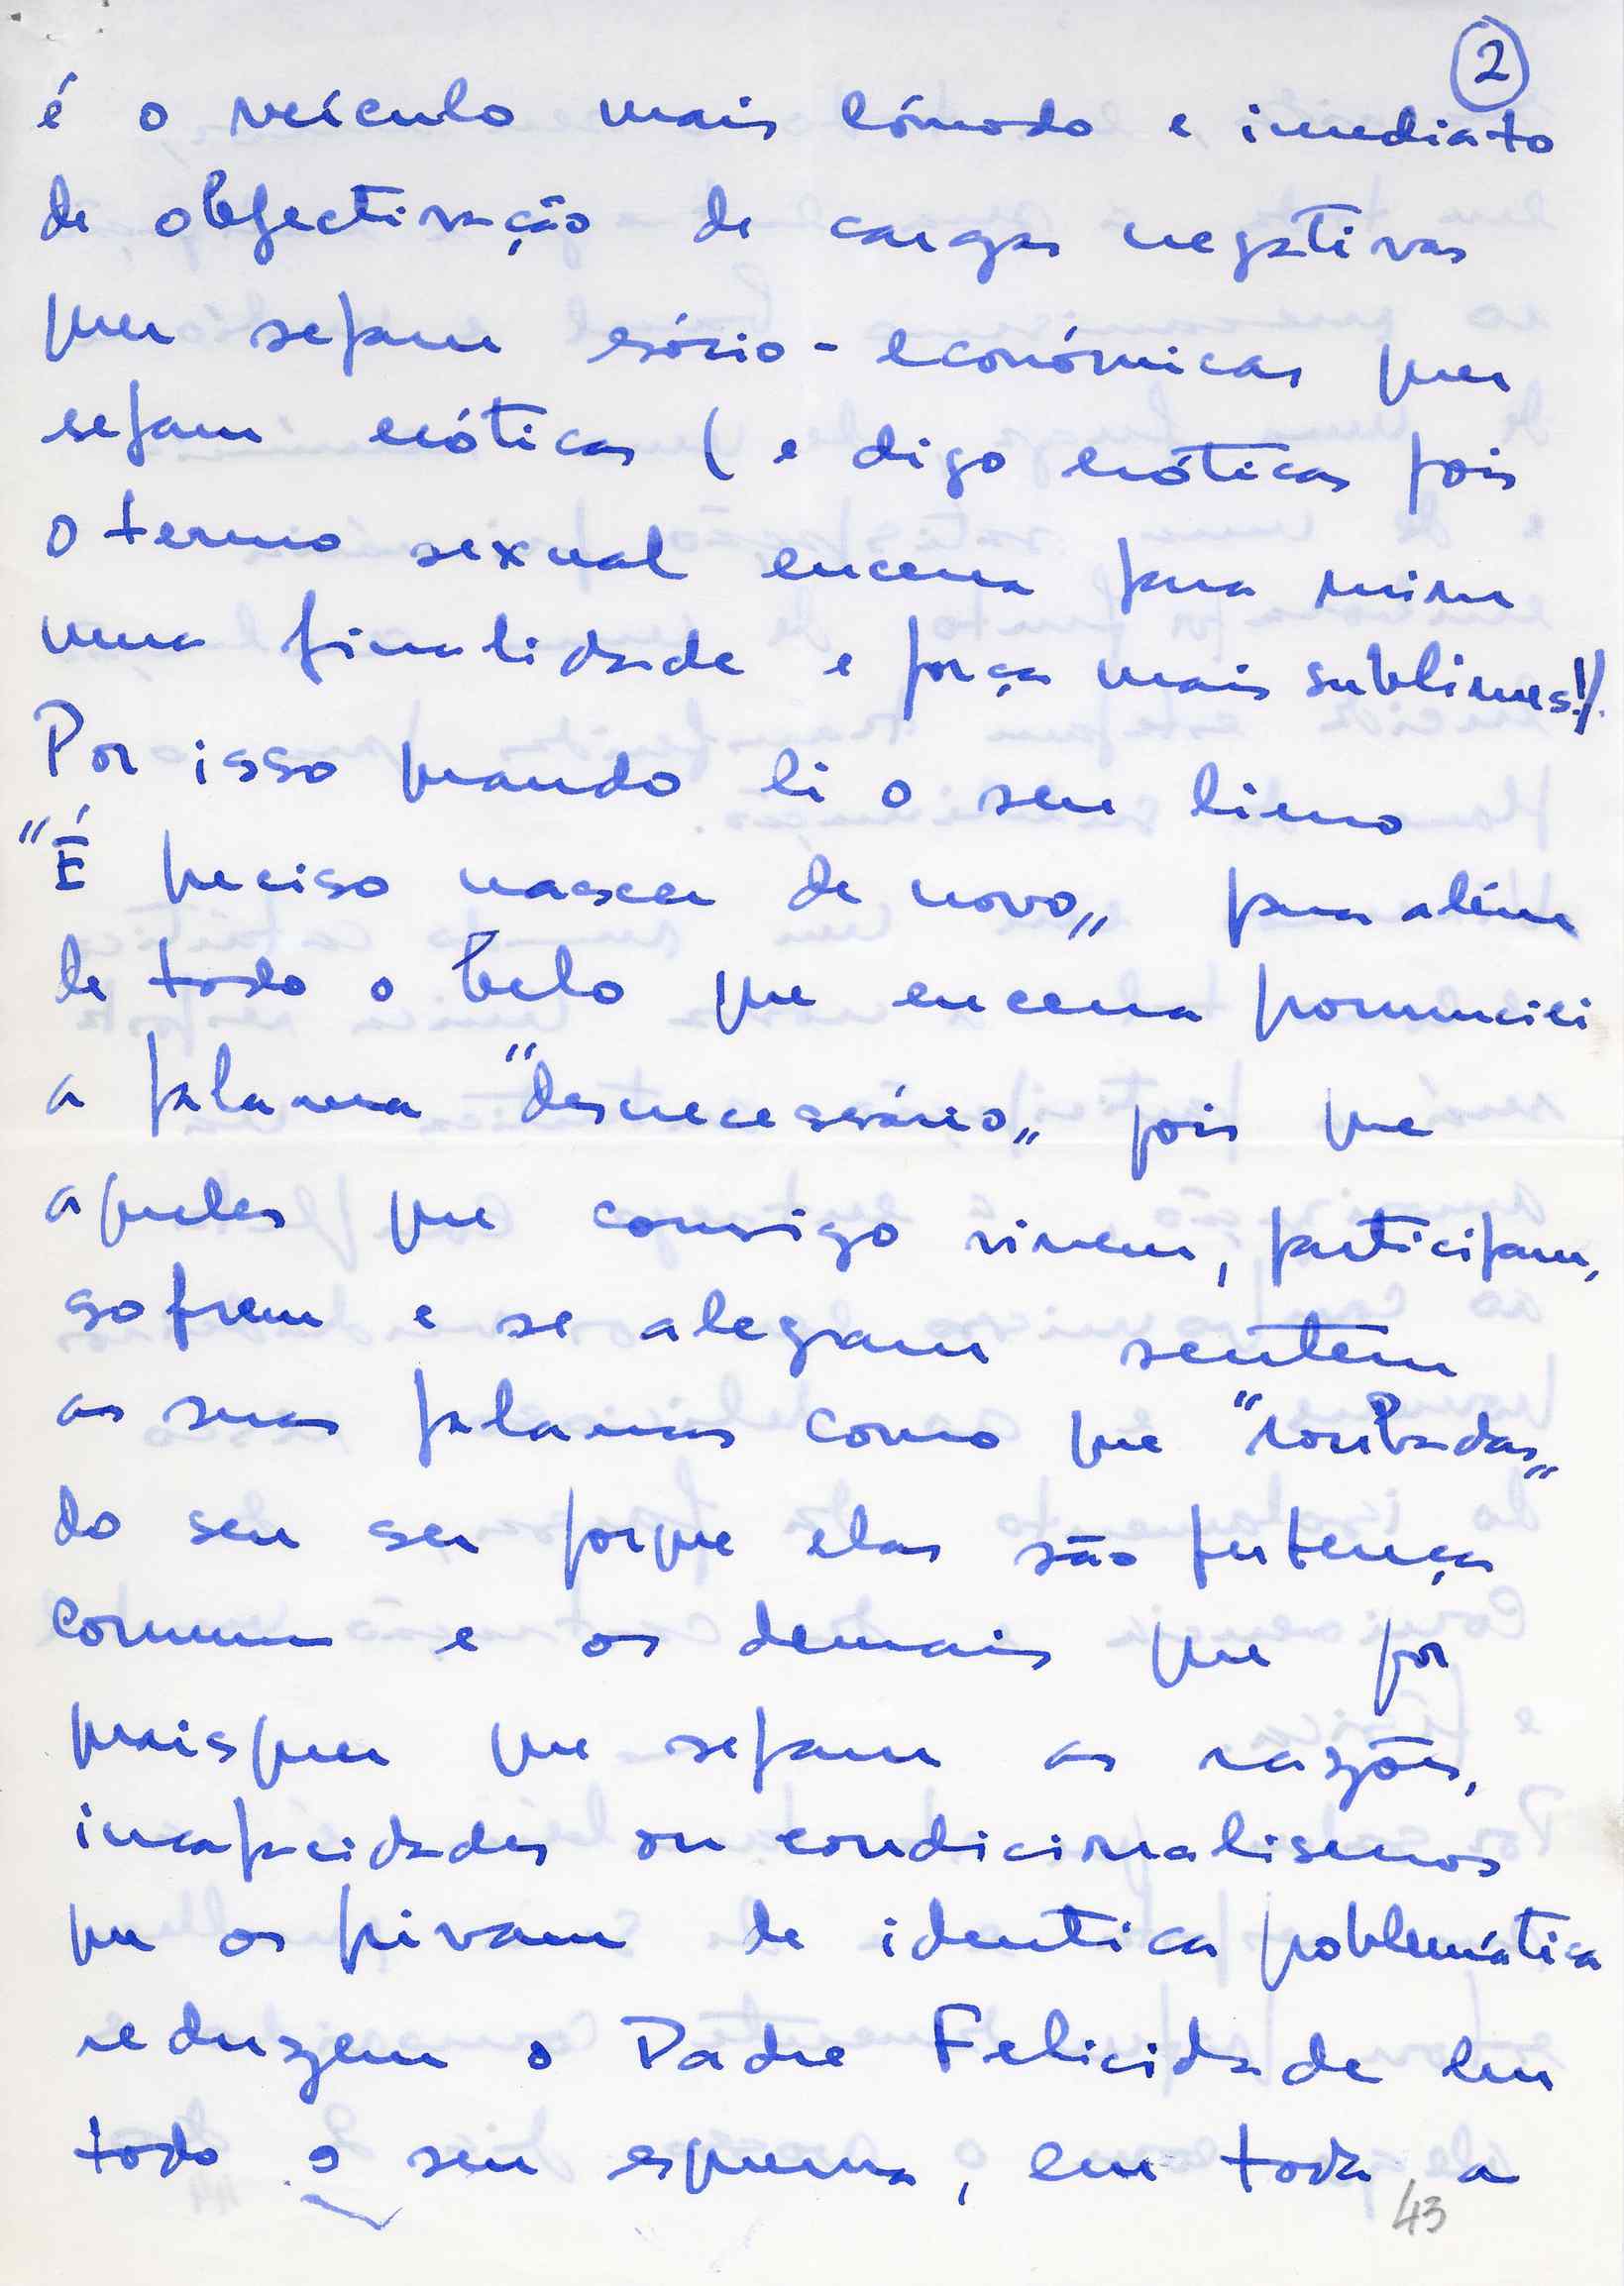 2
é o veículo mais cómodo e imediato
de objectivação de cargas negativas
quer sejam sócio-económicas quer
sejam eróticas (e digo eróticas pois
o termo sexual encerra para mim
uma finalidade e força mais sublimes!).
Por isso quando li o seu livro
"É preciso nascer de novo" para além
de todo o belo que encerra pronunciei
a palavra "desnecessário" pois que
aqueles que consigo vivem, participam,
sofrem e se alegram sentem
as suas palavras como que "roubadas"
do seu ser porque elas são pertença
comum e os demais que por
quaisquer que sejam as razões,
incapacidades ou condicionalismos
que os privam de identica problemática
reduzem o Padre Felicidade em
todo o seu esquema, em toda a
43